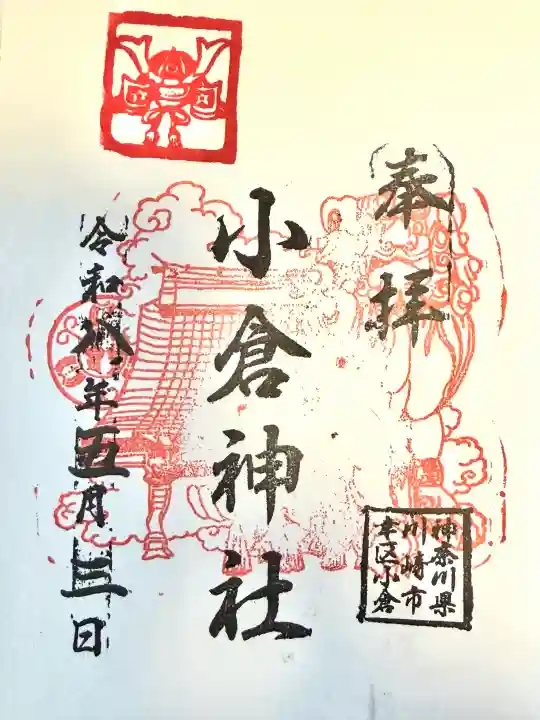 奉拝
神奈川県
川崎市
幸区小倉
小倉神社
令和八年五月三日